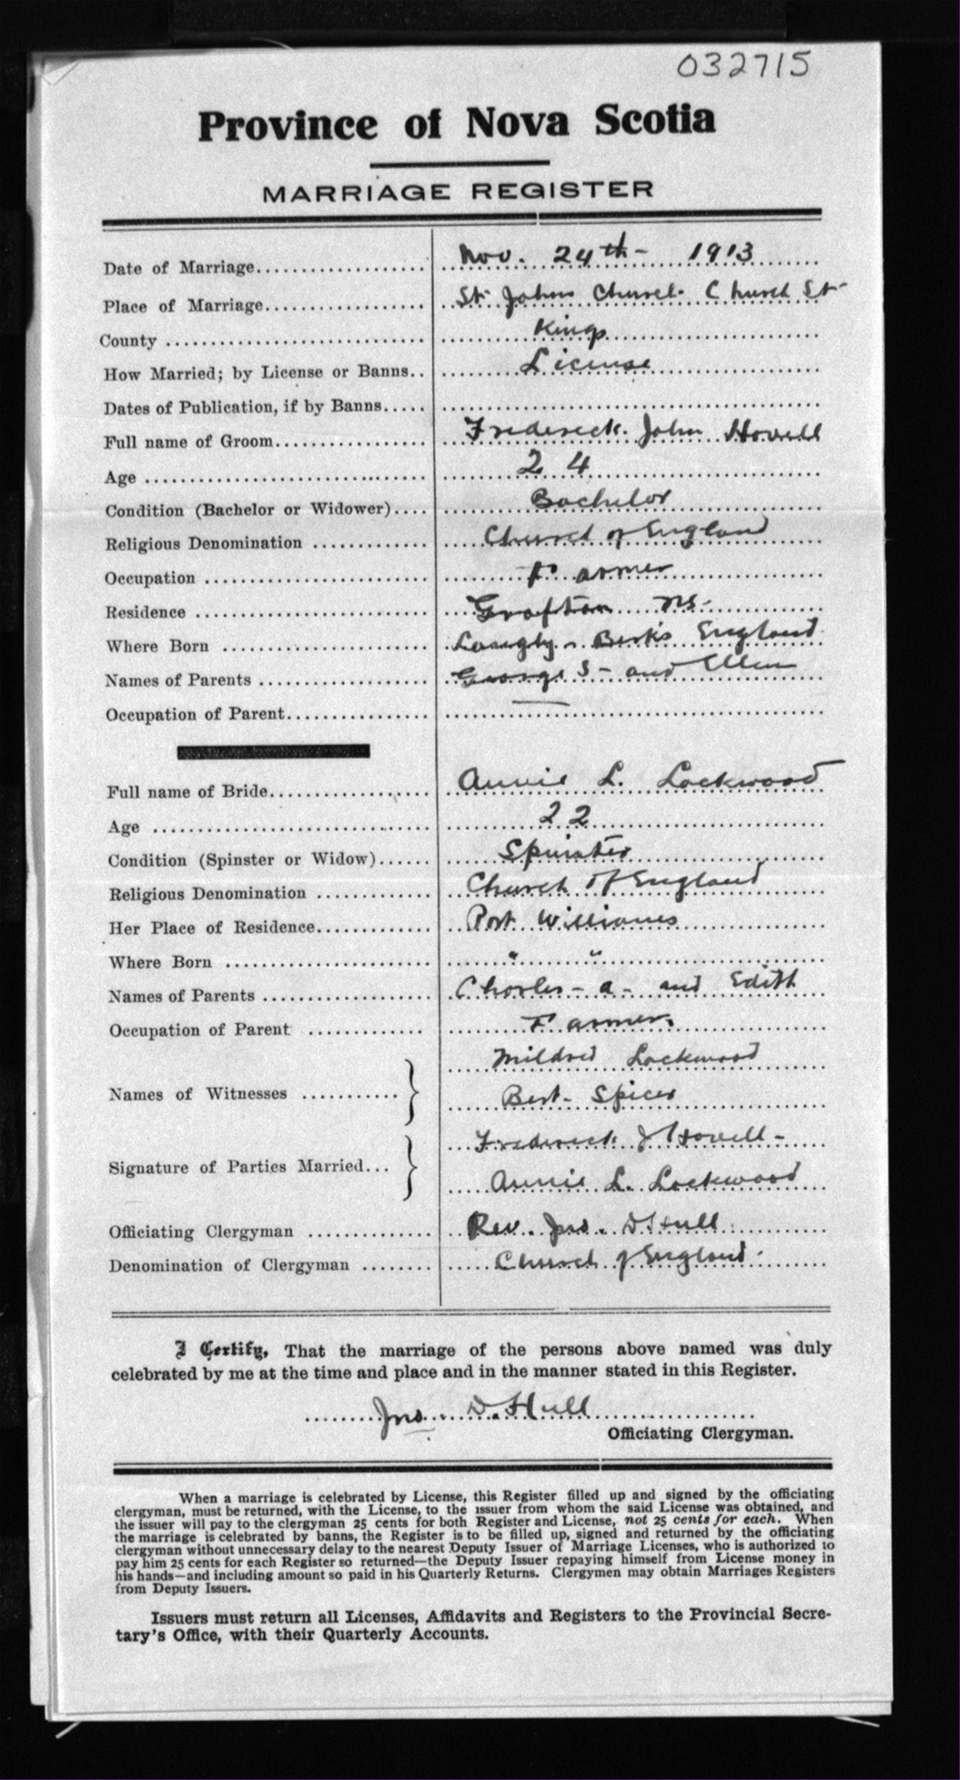 032715
Province of Nova Scotia
MARRIAGE REGISTER
Date of Marriage Nov. 24th - 1913
Place of Marriage St Johns Church Church St
County Kings
How Married; by License or Banns License
Dates of Publication, if by Banns
Full name of Groom Frederick John Hovell
Age 24
Condition (Bachelor or Widower) Bachelor
Religious Denomination Church of England
Occupation Farmer
Residence Grafton NS.
Where Born Berks England
Names of Parents George S - and Ellen
Occupation of Parent —
Full name of Bride Annie L. Lockwood
Age 22
Condition (Spinster or Widow) Spinster
Religious Denomination Church of England
Her Place of Residence Port Williams
Where Born " "
Names of Parents Charles - A - and Edith
Occupation of Parent Farmer
Mildred Lockwood
Names of Witnesses
Bert. Spicer
Frederick J Hovell -
Signature of Parties Married
Annie L. Lockwood
Officiating Clergyman Rev. Jno. D Hull
Denomination of Clergyman Church of England
I Certify, That the marriage of the persons above named was duly
celebrated by me at the time and place and in the manner stated in this Register.
Jno. D. Hull
Officiating Clergyman.
When a marriage is celebrated by License, this Register filled up and signed by the officiating
clergyman, must be returned, with the License, to the issuer from whom the said License was obtained, and
the issuer will pay to the clergyman 25 cents for both Register and License, not 25 cents for each. When
the marriage is celebrated by banns, the Register is to be filled up, signed and returned by the officiating
clergyman without unnecessary delay to the nearest Deputy Issuer of Marriage Licenses, who is authorized to
pay him 25 cents for each Register so returned—the Deputy Issuer repaying himself from License money in
his hands—and including amount so paid in his Quarterly Returns. Clergymen may obtain Marriages Registers
from Deputy Issuers.
Issuers must return all Licenses, Affidavits and Registers to the Provincial Secre-
tary's Office, with their Quarterly Accounts.